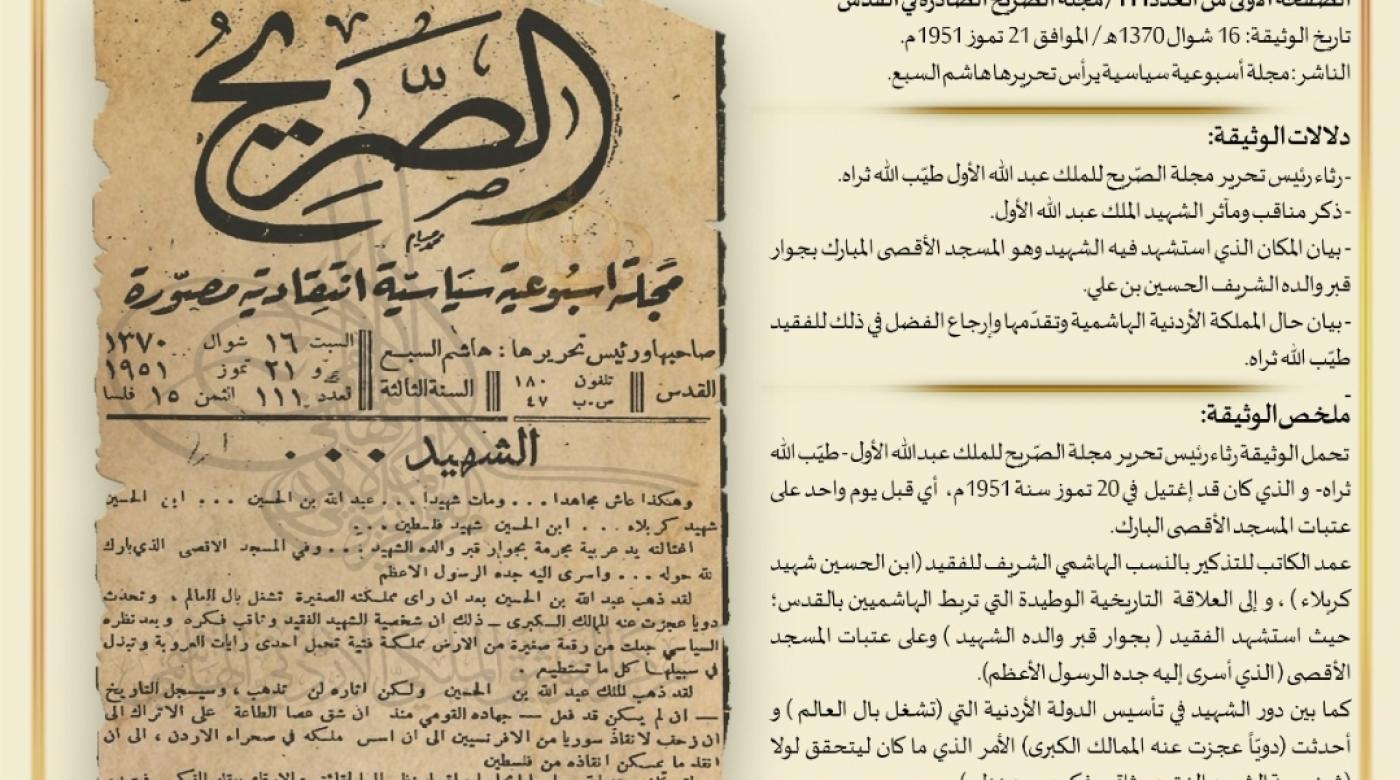 الصفحة الأولى من العدد 111 / مجلة الصّريح الصادرة في القدس
تاريخ الوثيقة: 16 شوال 1370هـ / الموافق 21 تموز 1951م.
الناشر: مجلة أسبوعية سياسية يرأس تحريرها هاشم السبع.
دلالات الوثيقة:
-رثاء رئيس تحرير مجلة الصّريح للملك عبد الله الأول طيّب الله ثراه.
-ذكر مناقب ومآثر الشهيد الملك عبد الله الأول.
- بيان المكان الذي استشهد فيه الشهيد وهو المسجد الأقصى المبارك بجوار
قبر والده الشريف الحسين بن علي.
-بيان حال المملكة الأردنية الهاشمية وتقدّمها وإرجاع الفضل في ذلك للفقيد
طيّب الله ثراه.
-
ملخص الوثيقة:
تحمل الوثيقة رثاء رئيس تحرير مجلة الصّريح للملك عبدالله الأول - طيّب الله
ثراه- و الذي كان قد إغتيل في 20 تموز سنة 1951م، أي قبل يوم واحد على
عتبات المسجد الأقصى البارك.
عمد الكاتب للتذكير بالنسب الهاشمي الشريف للفقيد (ابن الحسين شهيد
كربلاء) ، و إلى العلاقة التاريخية الوطيدة التي تربط الهاشميين بالقدس؛
حيث استشهد الفقيد ( بجوار قبر والده الشهيد ) وعلى عتبات المسجد
الأقصى (الذي أسرى إليه جده الرسول الأعظم).
كما بين دور الشهيد في تأسيس الدولة الأردنية التي (تشغل بال العالم ) و
أحدثت (دويّاً عجزت عنه الممالك الكبرى) الأمر الذي ما كان ليتحقق لولا
الصّريح
مجلة اسبوعية سياسية انتقادية مصوّرة
صاحبها ورئيس تحريرها : هاشم السبع
السبت ١٦ شوال ١٣٧٠
و ٢١ تموز ١٩٥١
القدس
تلفون ١٨٠
ص.ب ٤٧
السنة الثالثة
لعدد ١١١ الثمن ١٥ فلسا
الشهيد . . .
وهكذا عاش مجاهدا... ومات شهيدا... عبد الله بن الحسين ... ابن الحسين
شهيد كربلاء ... ابن الحسين شهيد فلسطين...
اغتالته يد عربية مجرمة بجوار قبر والده الشهيد ... وفي المسجد الاقصى الذي بارك
لله حوله ... واسرى اليه جده الرسول الاعظم
لقد ذهب عبد الله بن الحسين بعد ان راى مملكته الصغيرة تشغل بال العالم ، وتحدث
دويا عجزت عنه المالك الكبرى – ذلك ان شخصية الشهيد الفقيد وثاقب فكره وبعد نظره
السياسي جعلت من رقعة صغيرة من الارض مملكة فتية تحمل احدى رايات العروبة وتبذل
في سبيلها كل ما تستطيع .
لقد ذهب الملك عبد الله بن الحسين ولكن اثاره لن تذهب ، وسيسجل التاريخ
— ان لم يكن قد فعل — جهاده القومي منذ ان شق عصا الطاعة على الاتراك الى
ان زحف لانقاذ سوريا من الافرنسيين الى ان اسس ملكه في صحراء الاردن ، الى ان
انقذ ما يمكن انقاذه من فلسطين